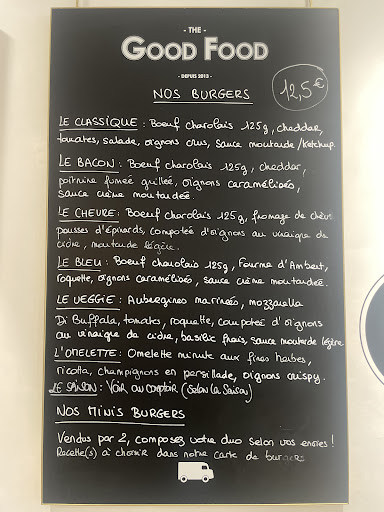 - THE -
GOOD FOOD
- DEPUIS 2013 -
NOS BURGERS
12,5€
LE CLASSIQUE : Boeuf charolais 125g, cheddar,
tomates, salade, oignons crus, sauce moutarde/ketchup.
LE BACON : Boeuf charolais 125g, cheddar,
poitrine fumée grillée, oignons caramélisés,
sauce crème moutardée.
LE CHEVRE : Boeuf charolais 125g, fromage de chèvre
pousses d'épinards, compotée d'oignons au vinaigre de
cidre, moutarde légère.
LE BLEU : Boeuf charolais 125g, Fourme d'Ambert,
roquette, oignons caramélisés, sauce crème moutardée.
LE VEGGIE : Aubergines marinées, mozzarella
Di Buffala, tomates, roquette, compotée d'oignons
au vinaigre de cidre, basilic frais, sauce moutarde légère
L'OMELETTE : Omelette minute aux fines herbes,
ricotta, champignons en persillade, oignons crispy.
LE SAISON : VOIR AU COMPTOIR (Selon la Saison)
NOS MINIS BURGERS
Vendus par 2, composez votre duo selon vos envies !
Recette(s) à choisir dans notre carte de burgers